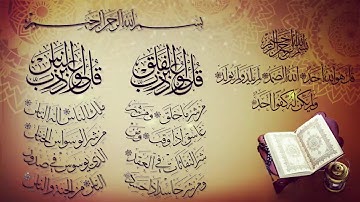 بسم الله الرحمن الرحيم
بسم الله الرحمن الرحيم
قل هو الله أحد الله الصمد لم يلد ولم يولد
ولم يكن له كفوا أحد
قل أعوذ برب الفلق
من شر ما خلق ومن شر
غاسق إذا وقب ومن
شر النفاثات في العقد
ومن شر حاسد إذا حسد
قل أعوذ برب الناس
ملك الناس إله الناس
من شر الوسواس الخناس
الذي يوسوس في صدور
الناس من الجنة والناس